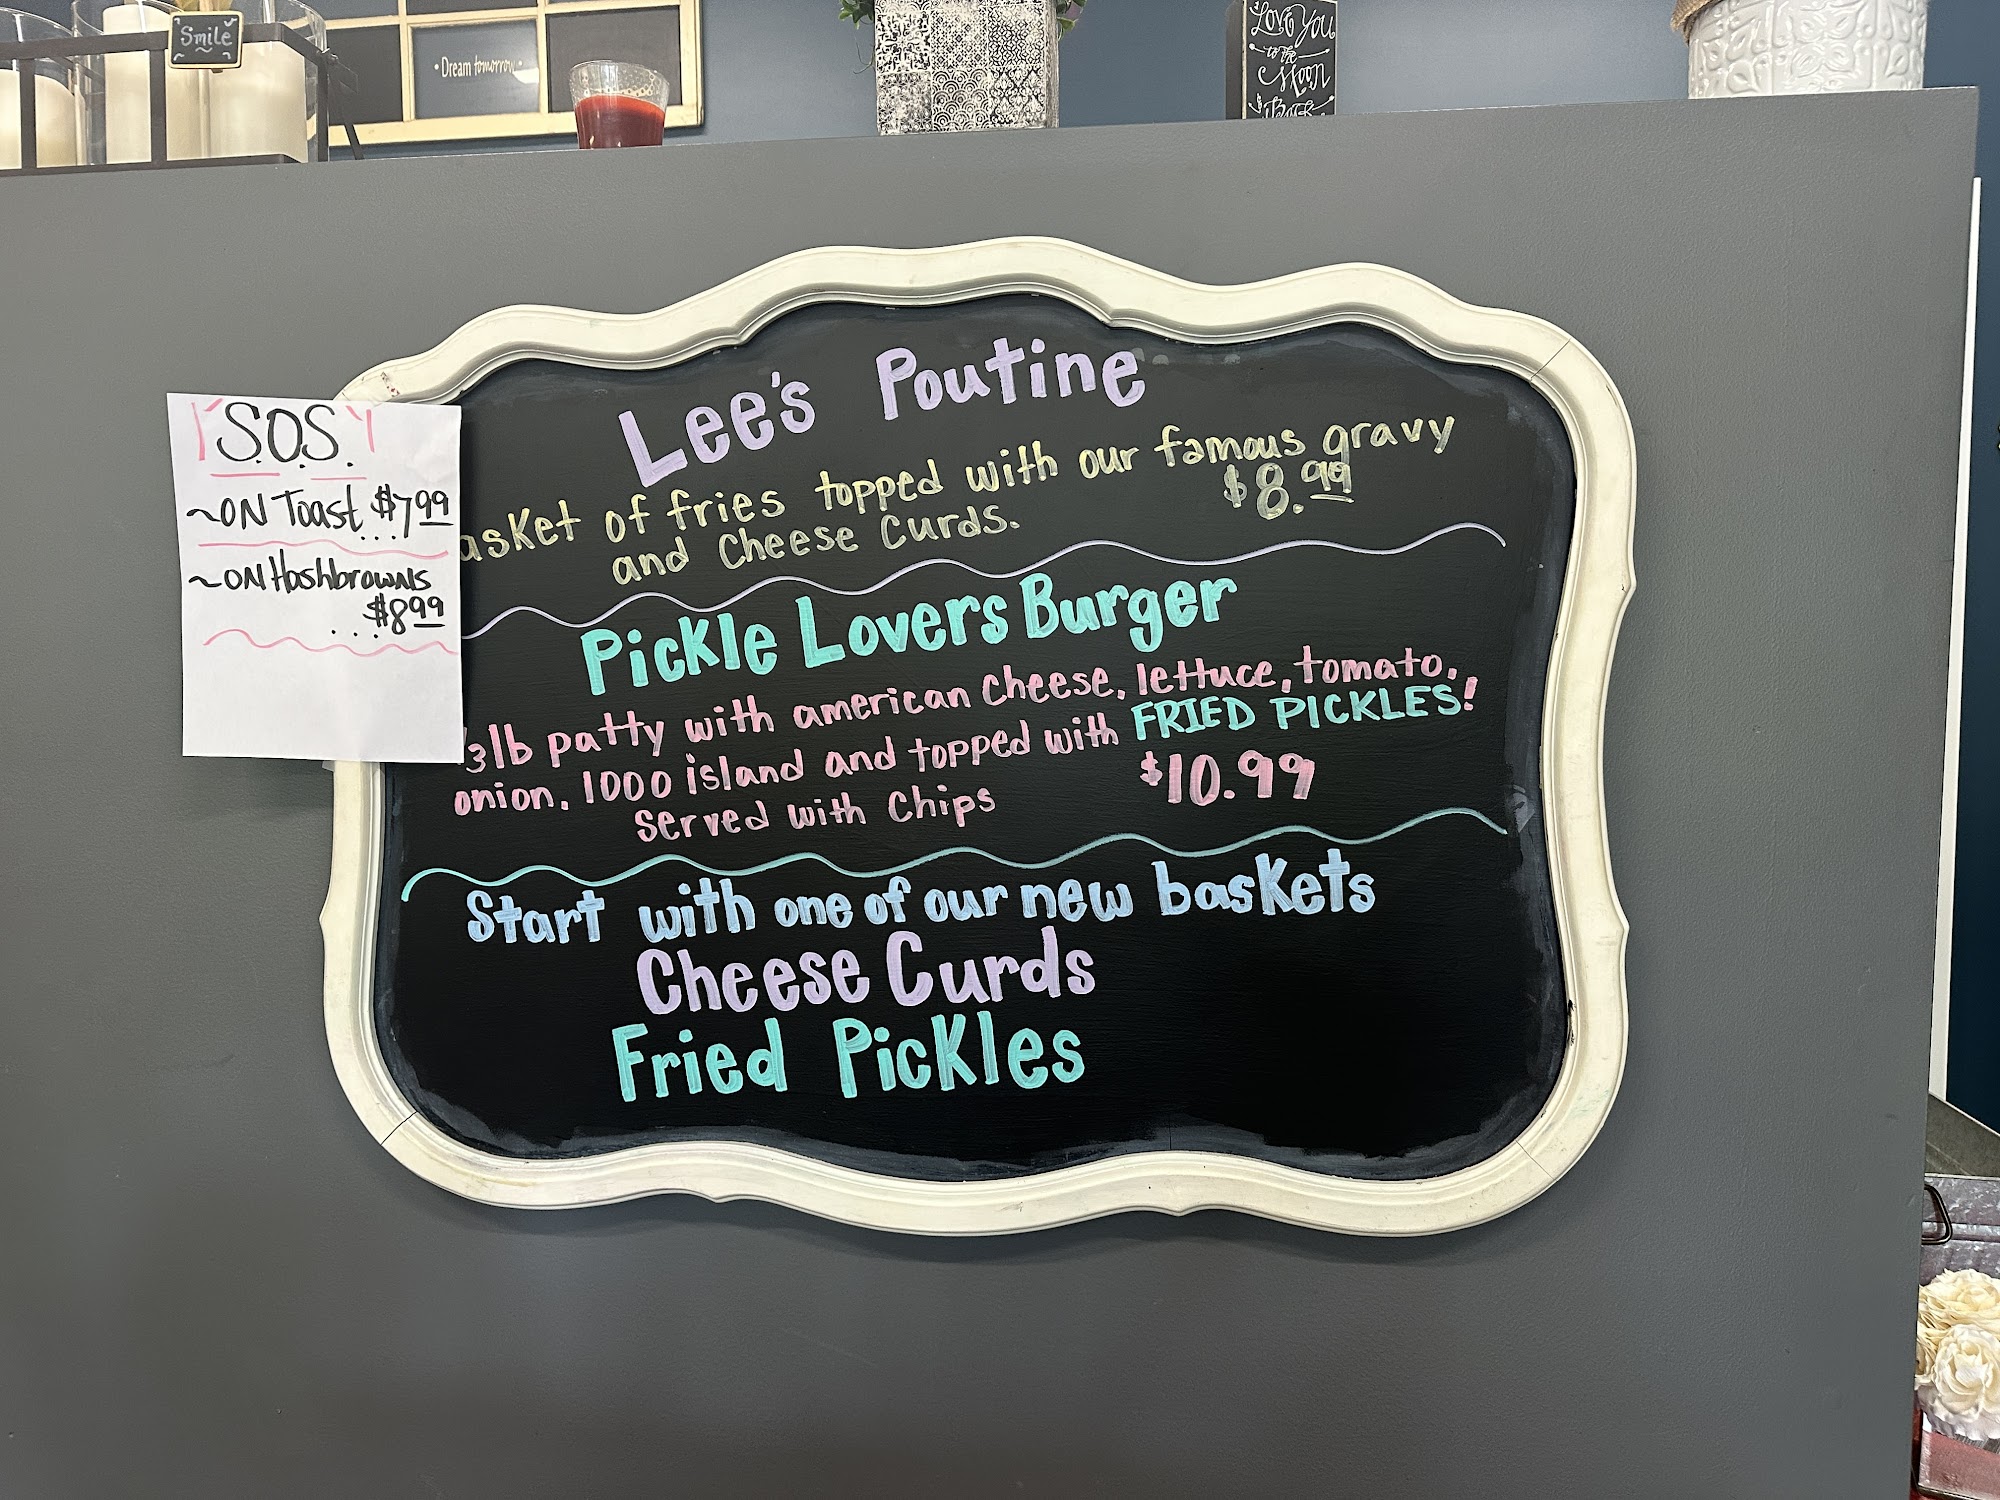 Smile
Dream tomorrow
Love You
to the
Moon
Back
S.O.S.
~ON Toast $7.99
~ON Hashbrowns
...$8.99
Lee's Poutine
asket of fries topped with our famous gravy
and Cheese Curds. $8.99
Pickle Lovers Burger
3lb patty with american cheese, lettuce, tomato,
onion, 1000 island and topped with FRIED PICKLES!
Served with Chips $10.99
Start with one of our new baskets
Cheese Curds
Fried Pickles